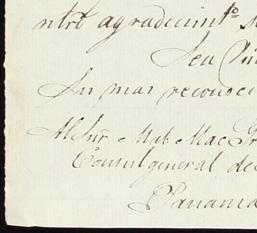 ntro agradecimto
Sea
Su mas reconoci
Al Sor Mac Gr
Consul general de
Panama